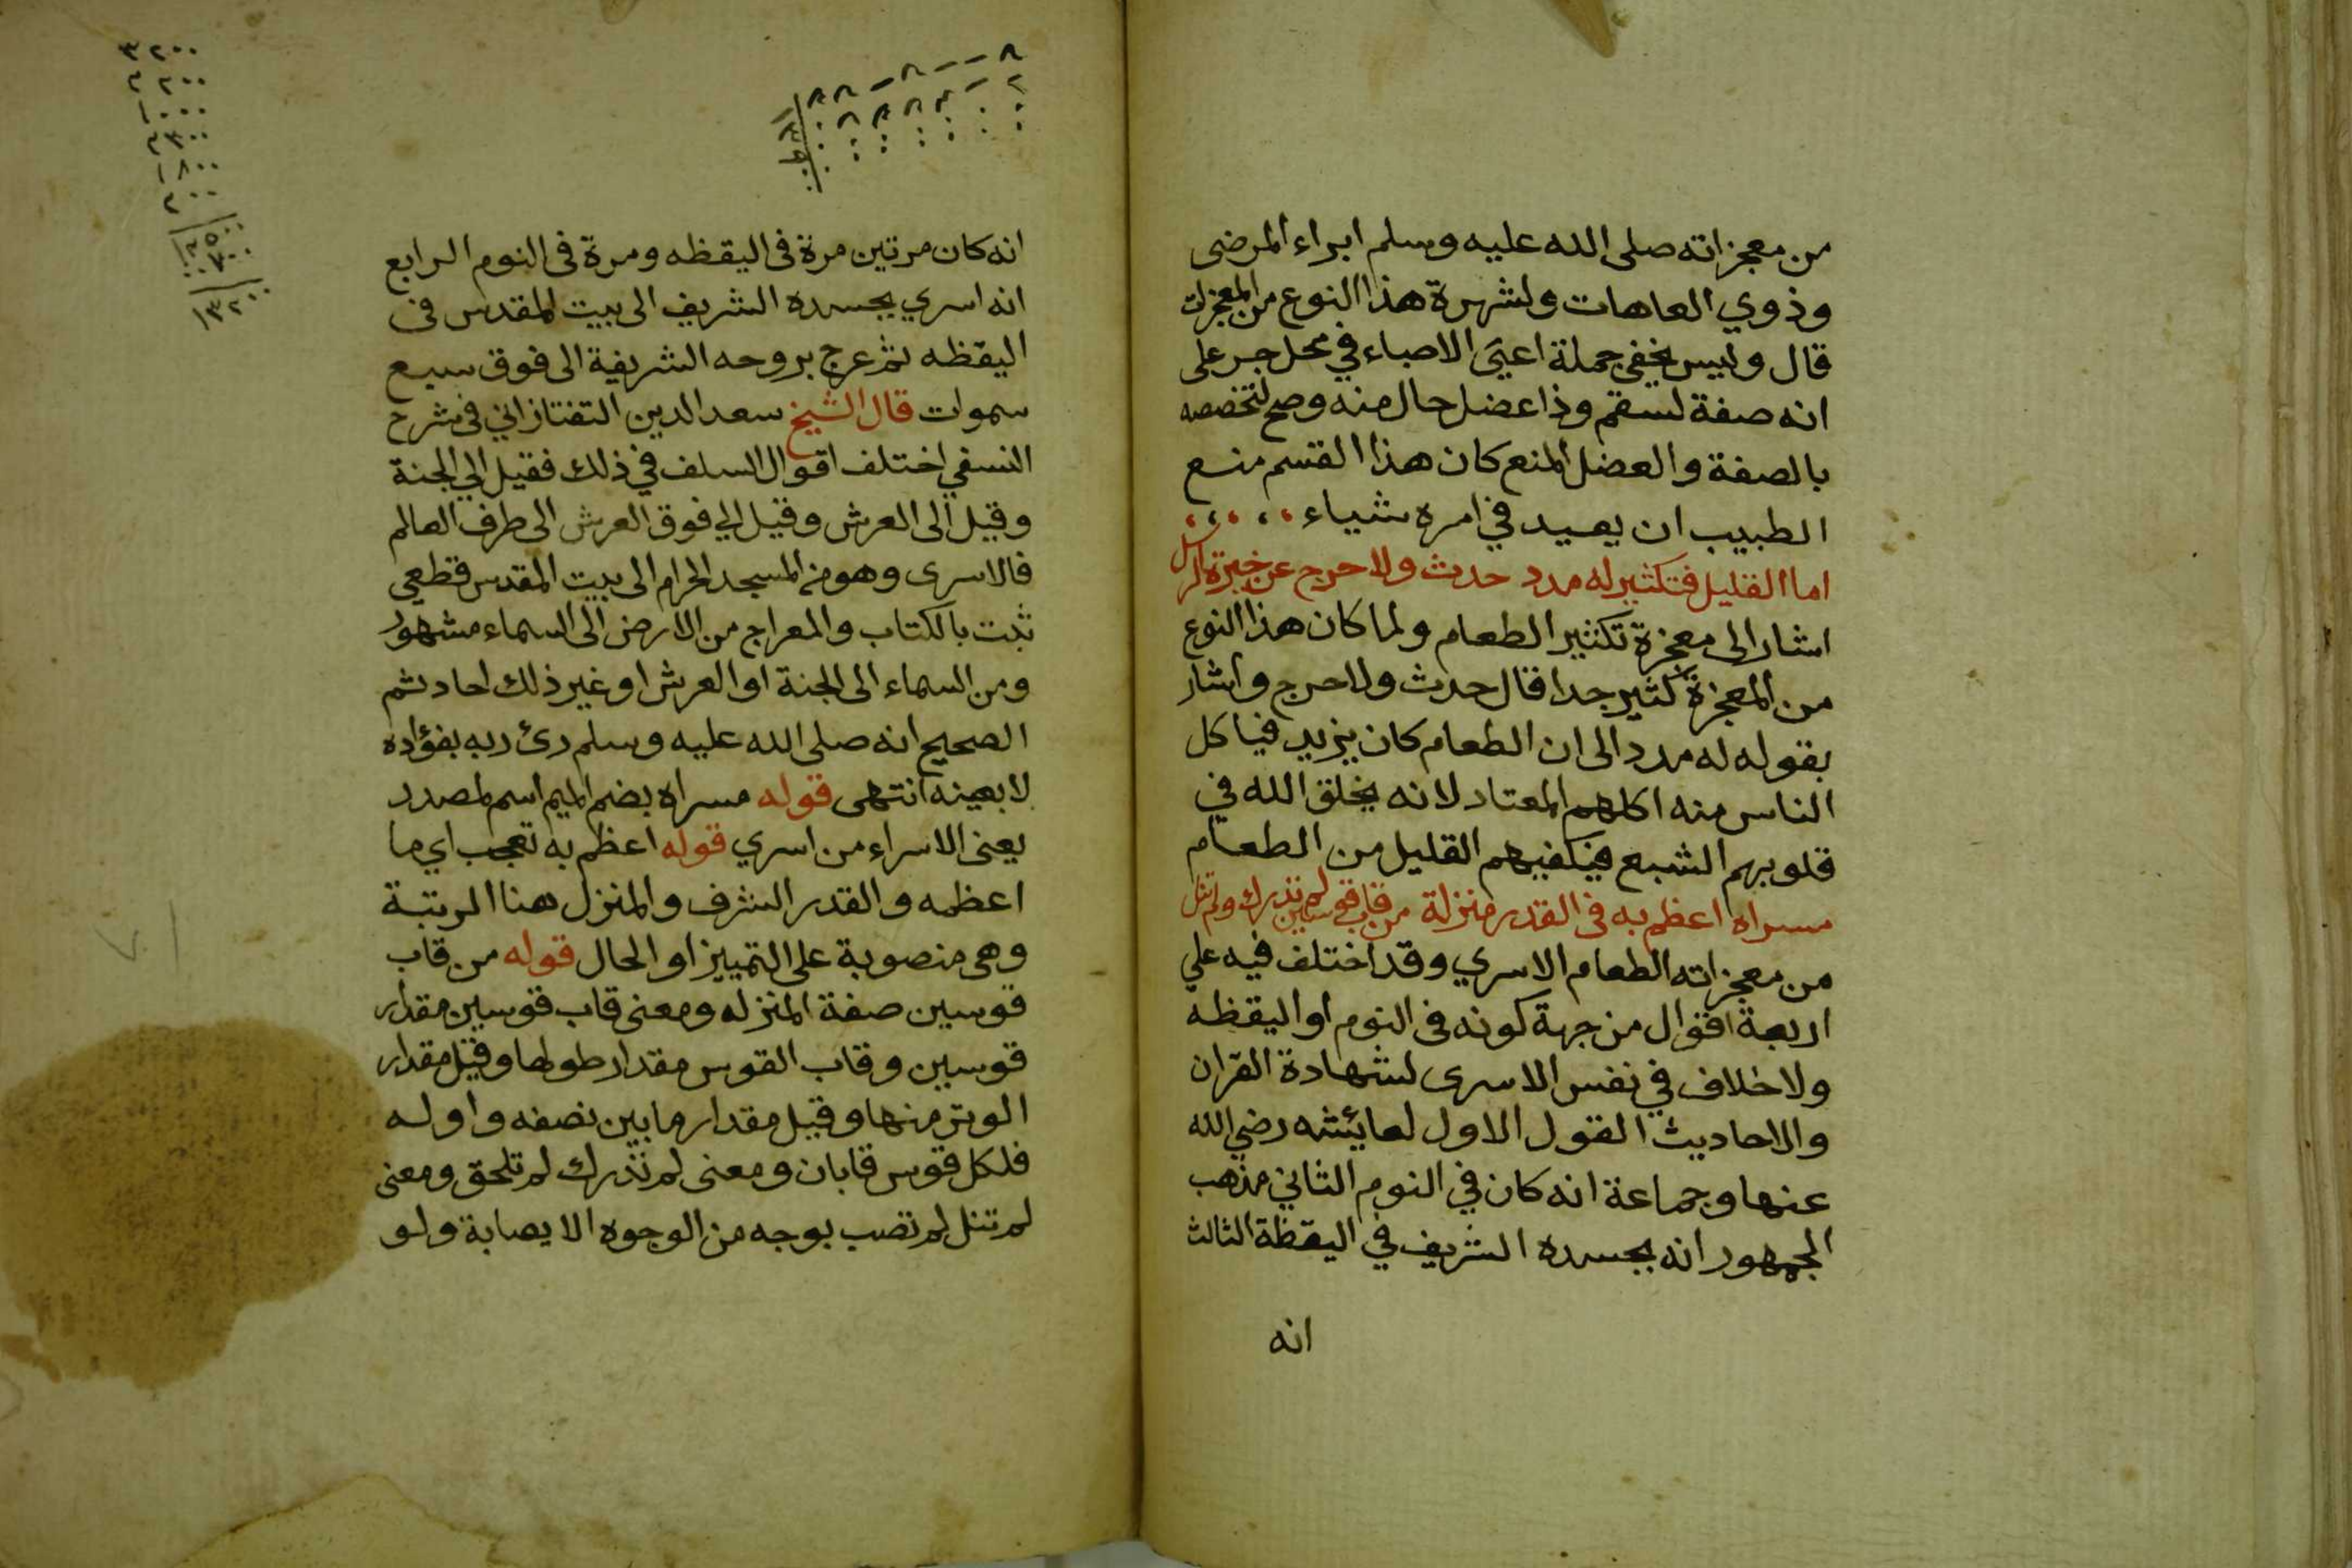 من معجزاته صلى الله عليه وسلم ابراء المرضى
وذوي العاهات ولشهرة هذا النوع من المعجزات
قال وليس يخفى جملة اعيى الاصباء في محل جر على
انه صفة لسقم وذا عضل حال منه وصح لتخصصه
بالصفة والعضل المنع كان هذا القسم منع
الطبيب ان يعيد في امره شياء
اما القليل فتكثير له مدد حدث ولا حرج عن خبرة الرسل
اشار الى معجزة تكثير الطعام ولما كان هذا النوع
من المعجزة كثير جدا قال حدث ولا حرج واشار
بقوله له مدد الى ان الطعام كان يزيد فياكل
الناس منه اكلهم المعتاد لانه يخلق الله في
قلوبهم الشبع فيكفيهم القليل من الطعام
مسراه اعظم به فى القدر منزلة من قاب قوسين لم تدرك ولم تنل
من معجزاته الطعام الاسري وقد اختلف فيه على
اربعة اقوال من جهة كونه فى النوم او اليقظة
ولا خلاف في نفس الاسرى لشهادة القران
والاحاديث القول الاول لعايئشه رضي الله
عنها وجماعة انه كان في النوم الثاني مذهب
الجمهور انه بجسده الشريف في اليقظة الثالث
انه
انه كان مرتين مرة فى اليقظه ومرة فى النوم الرابع
انه اسري بجسده الشريف الى بيت المقدس فى
اليقظه ثم عرج بروحه الشريفة الى فوق سبع
سموات قال الشيخ سعد الدين التفتازاني فى شرح
النسفي اختلف اقوال السلف في ذلك فقيل الي الجنة
وقيل الى العرش وقيل الي فوق العرش الى طرف العالم
فالاسرى وهو من المسجد الحرام الى بيت المقدس قطعي
ثبت بالكتاب والمعراج من الارض الى السماء مشهور
ومن السماء الى الجنة او العرش او غير ذلك احاد ثم
الصحيح انه صلى الله عليه وسلم رئ ربه بفؤاده
لا بعينه انتهى قوله مسراه بضم الميم اسم لمصدر
يعنى الاسراء من اسري قوله اعظم به تعجب اي ما
اعظمه والقدر الشرف والمنزل هنا الرتبة
وهى منصوبة على التمييز او الحال قوله من قاب
قوسين صفة المنزله ومعنى قاب قوسين مقدار
قوسين وقاب القوس مقدار طولها وقيل مقدار
الوتر منها وقيل مقدار ما بين نصفه واوله
فلكل قوس قابان ومعنى لم تدرك لم تلحق ومعنى
لم تنل لم تصب بوجه من الوجوه الايصابة ولو